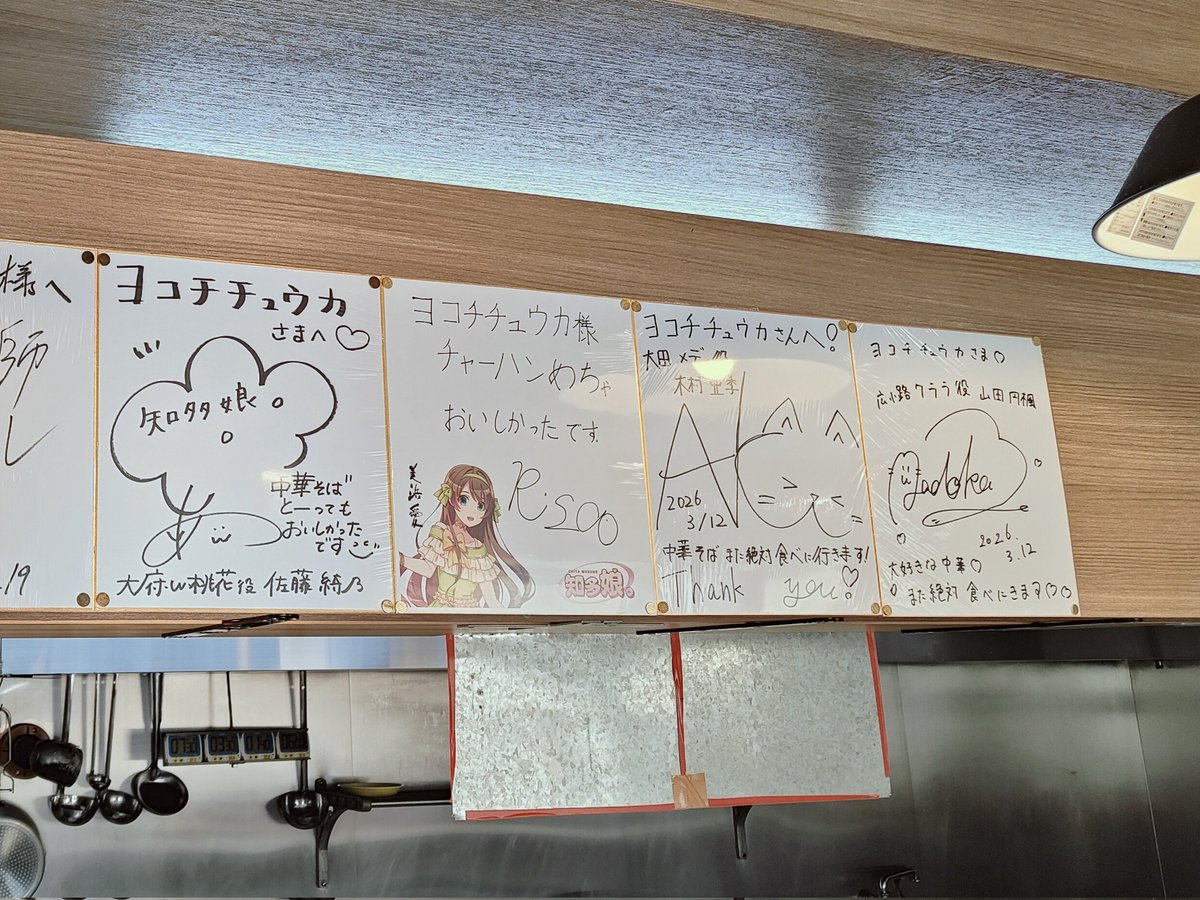 様へ
師
し
.19
ヨコチチュウカ
さまへ♡
知多娘。
中華そば
とーっても
おいしかった
です
大府w桃花役 佐藤 綺乃
ヨコチチュウカ様
チャーハンめちゃ
おいしかったです。
美浜愛
Risoo
CHITA MUSUME
知多娘。
ヨコチチュウカさんへ!
大田 メデ 役
木村 亜季
2026
3/12
中華そば また絶対 食べに行きます!
Thank you♡
ヨコチチュウカさま♡
広小路 クララ 役 山田 円楓
Madoka
2026.
3.12
大好きな中華♡
また絶対 食べにきます♡♡